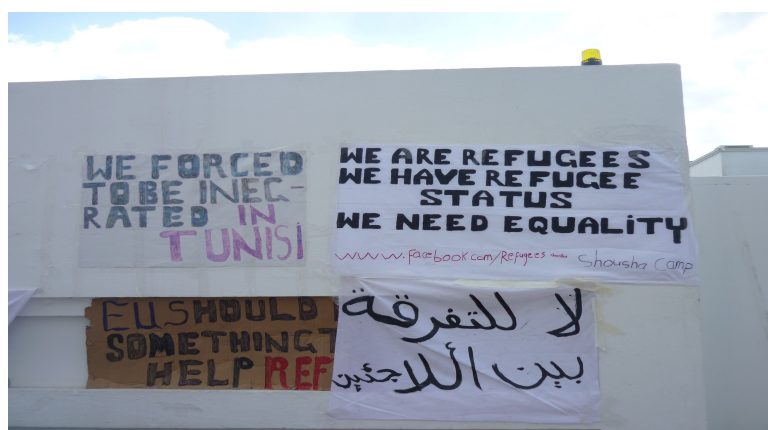 WE FORCED
TO BE INEG-
RATED IN
TUNISI
WE ARE REFUGEES
WE HAVE REFUGEE
STATUS
WE NEED EQUALITY
www.facebook.com/Refugees
Shousha Camp
EU SHOULD
SOMETHING
HELP REF
لا للتفرقة
بين أللاجئين